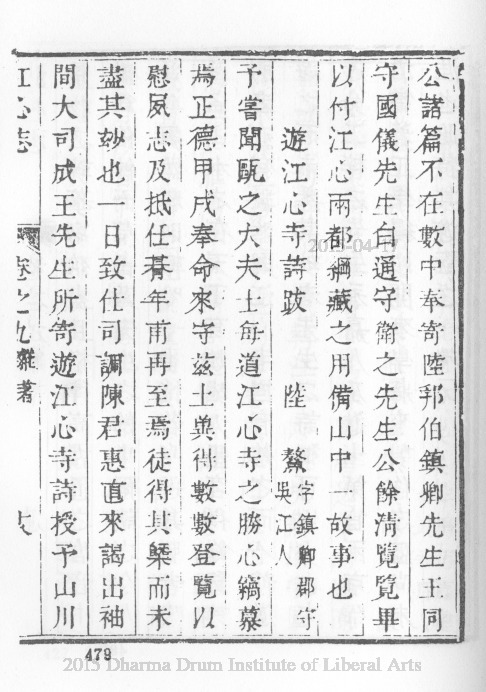 公諸篇不在數中奉寄陸郅伯鎮卿先生王同
守國儀先生白通守衛之先生公餘清覽覽畢
以付江心兩都綱藏之用備山中一故事也
遊江心寺詩跋 陸鰲字鎮卿郡守吳江人
予嘗聞甌之大夫士每道江心寺之勝心竊慕
焉正德甲戌奉命來守茲土與得數數登覽以
慰夙志及抵任朞年甫再至焉徒得其槩而未
盡其妙也一日致仕司諫陳君惠直來謁出袖
間大司成王先生所寄遊江心寺詩授予山川
江心志 卷之九雜著 十八
479
2015-04-17
2015 Dharma Drum Institute of Liberal Arts